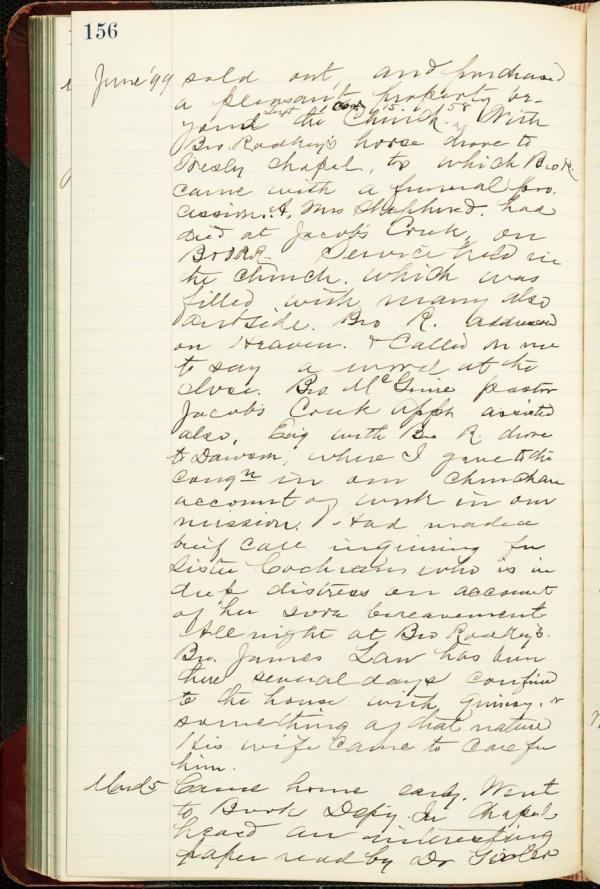 156
June '99 sold out, and purchased
a pleasant property be-
yond the Church. With
Bro. Roadkey's horse drove to
Wesley Chapel, to which Bro R.
came with a funeral pro.
cession. A, Mrs Shepherd. had
died at Jacob's Creek, on
B&O RR. Service held in
the church. which was
filled with many also
outside. Bro R. addressed
on Heaven. & Called on me
to say a word at the
close. Bro. McGuire pastor
Jacob's Creek assisted
also, Evg with Bro R. drove
to Dawson, where I gave to the
congn in our church an
account of work in our
mission. Had made a
brief call inquiring for
Sister Cochran who is in
deep distress on account
of her sore bereavement
All night at Bro Roadkey's.
Bro. James Law has been
there several days confined
to the house with quinsy. or
something of that nature
His wife came to care for
him.
Mond 5 Came home early. Went
to Book Depy. In Chapel
heard an interesting
paper read by Dr